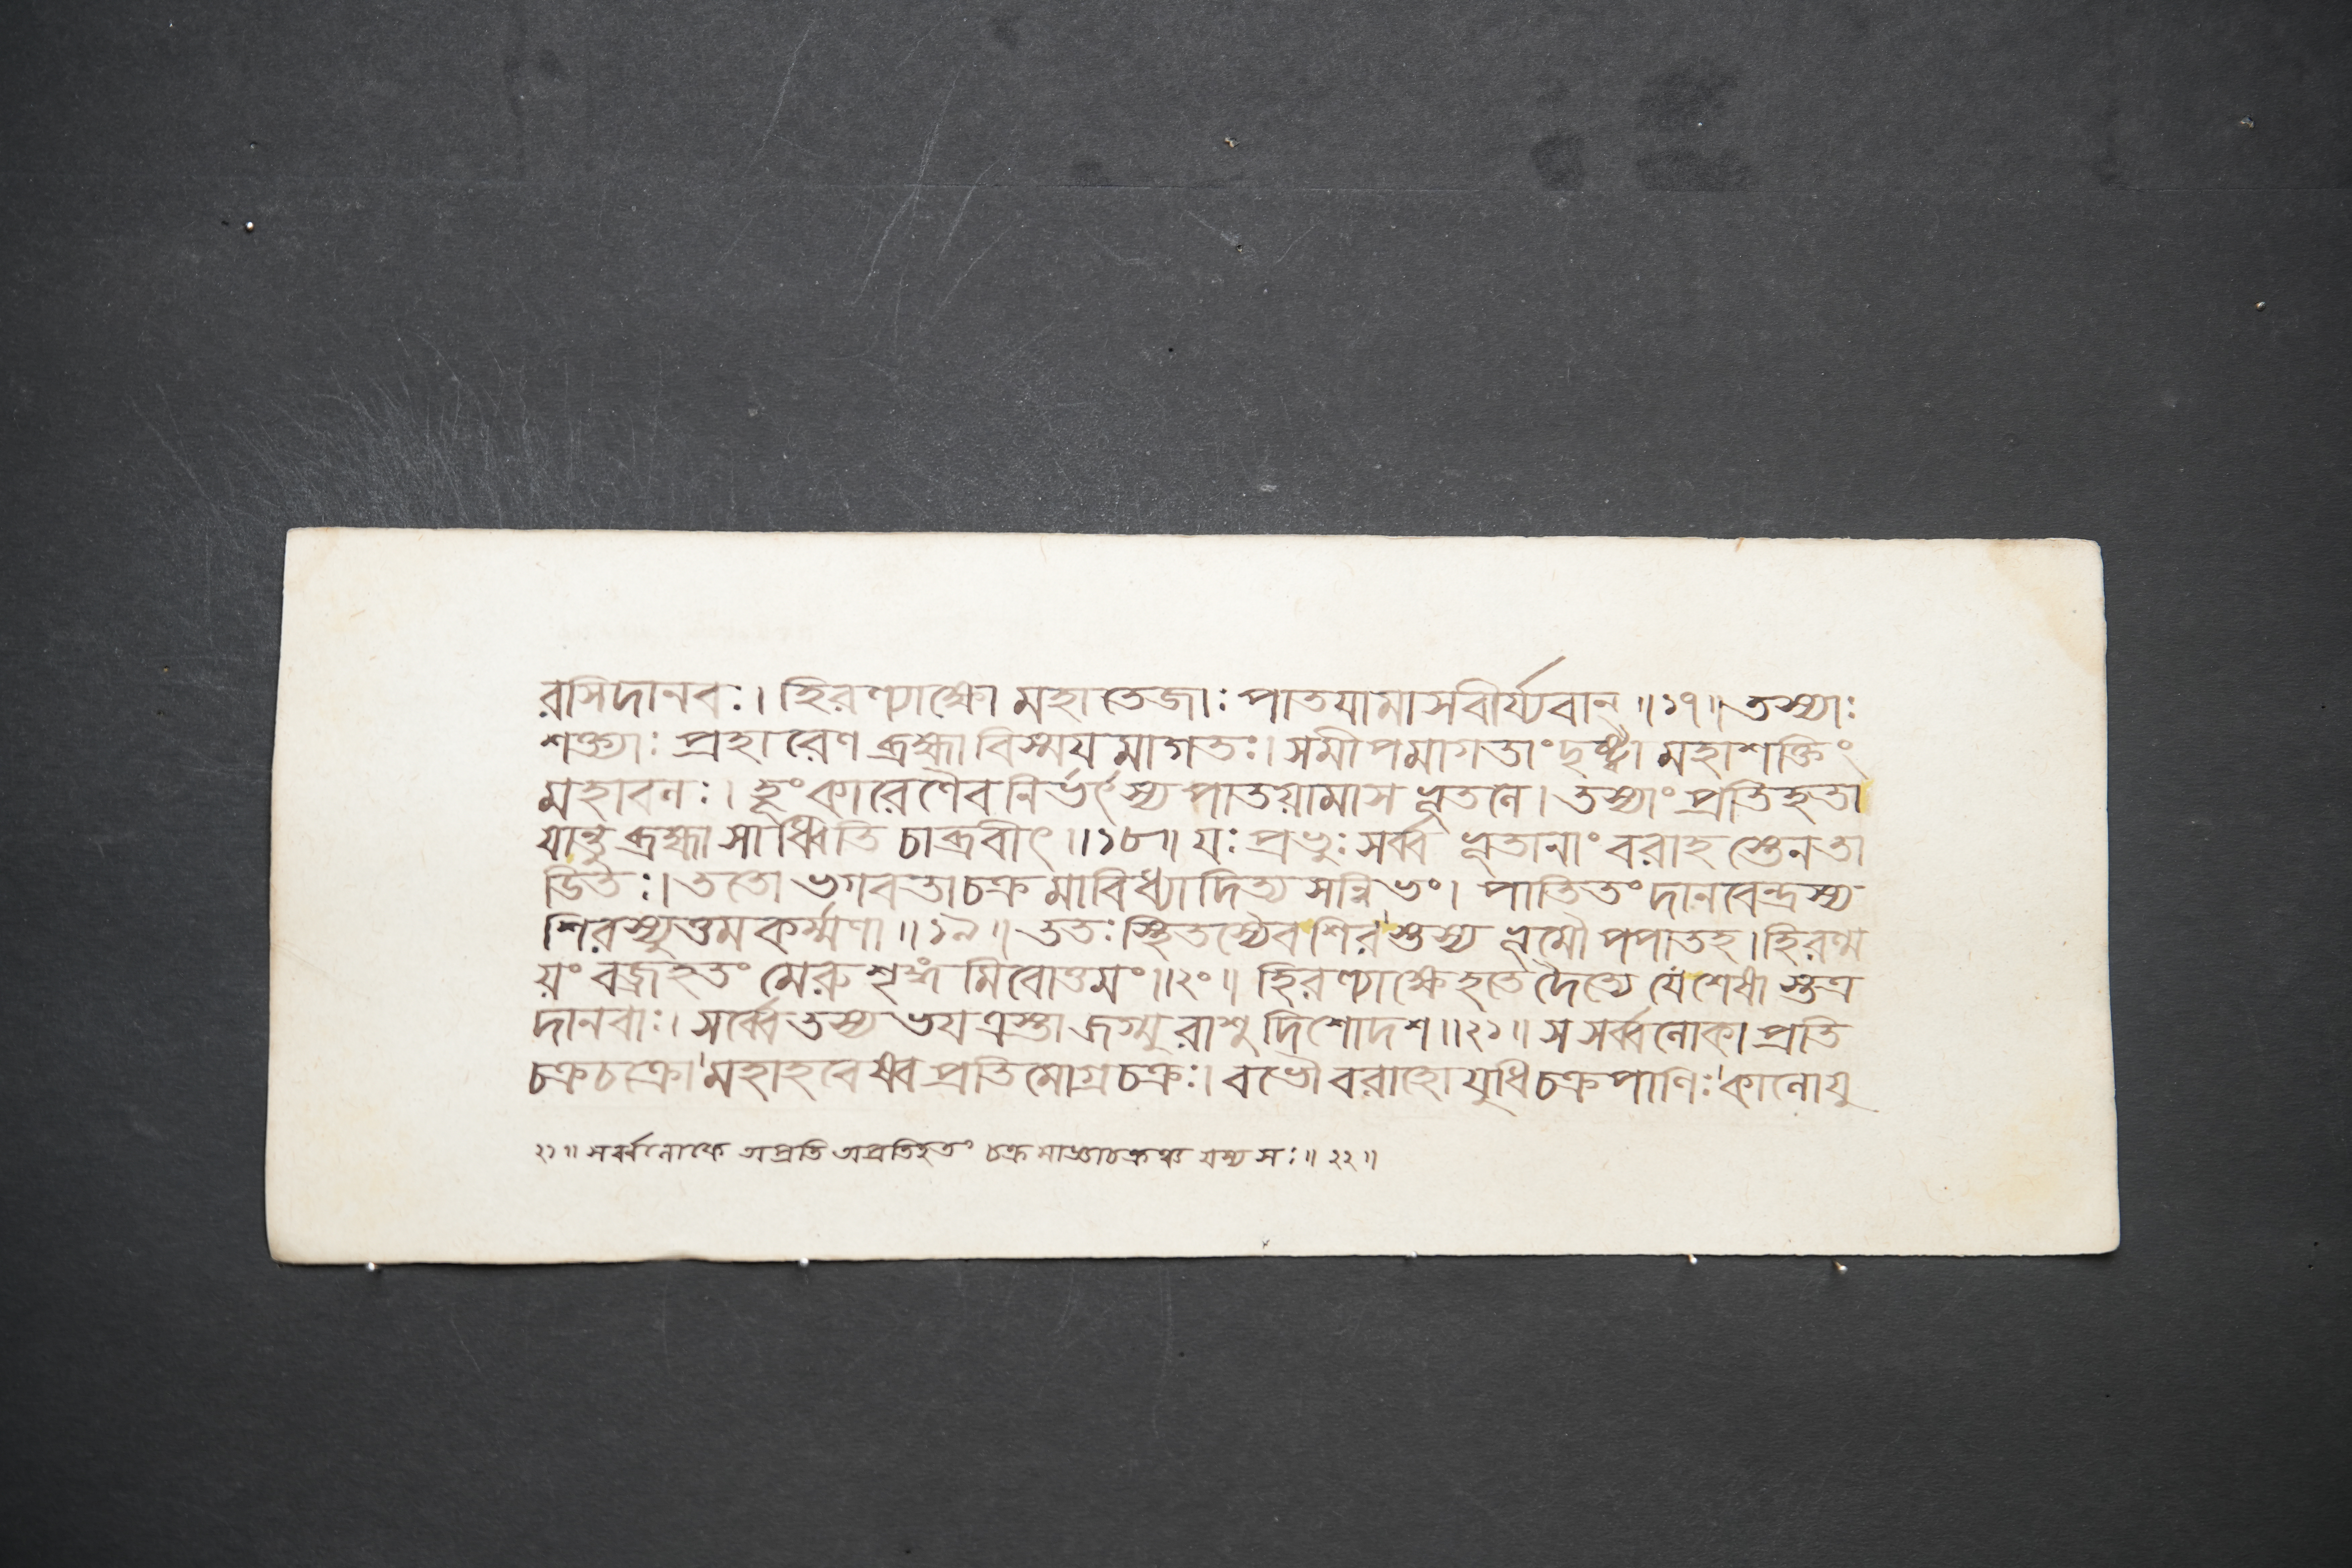 রসিদানবঃ। হিরণ্যাক্ষো মহাতেজাঃ পাতযামাসবীর্য্যবান্ ॥১৭॥ তস্যাঃ
শক্ত্যাঃ প্রহারেণ ব্রহ্মা বিস্ময মাগতঃ। সমীপমাগতাং দৃষ্ট্বা মহাশক্তিং
মহাবলঃ। হূংকারেণৈব নির্ভর্ৎস্য পাতয়ামাস ভূতলে। তস্যাং প্রতিহতা
যান্তু ব্রহ্মা সাধ্বিতি চাব্রবীৎ॥১৮॥ যঃ প্রভুঃ সর্ব্ব ভূতানাং বরাহ স্তেনতা
ডিতঃ। ততো ভগবতা চক্র মাবিধ্যাদিত্য সন্নিভং। পাতিতং দানবেন্দ্রস্য
শিরস্যুত্তম কর্ম্মণা ॥১৯॥ ততঃ স্থিতস্যৈব শির স্তস্য ভূমৌ পপাতহ। হিরণ্ম
য়ং বজ্রহতং মেরু শৃঙ্গ মিবোত্তমং॥২০॥ হিরণ্যাক্ষে হতে দৈত্যে যে শেষা স্তত্র
দানবাঃ। সর্ব্বে তস্য ভযত্রস্তা জগ্মু রাশু দিশোদশ॥২১॥ স সর্ব্বলোকা প্রতি
চক্রচক্রো মহাহবেষ্ব প্রতিমোগ্রচক্রঃ। বভৌ বরাহো যুধি চক্রপাণিঃ কালোযু
২১॥ সর্ব্বলোকে অপ্রতি অপ্রতিহতং চক্র মাজ্ঞাচক্রঞ্চ যস্য সঃ॥ ২২॥